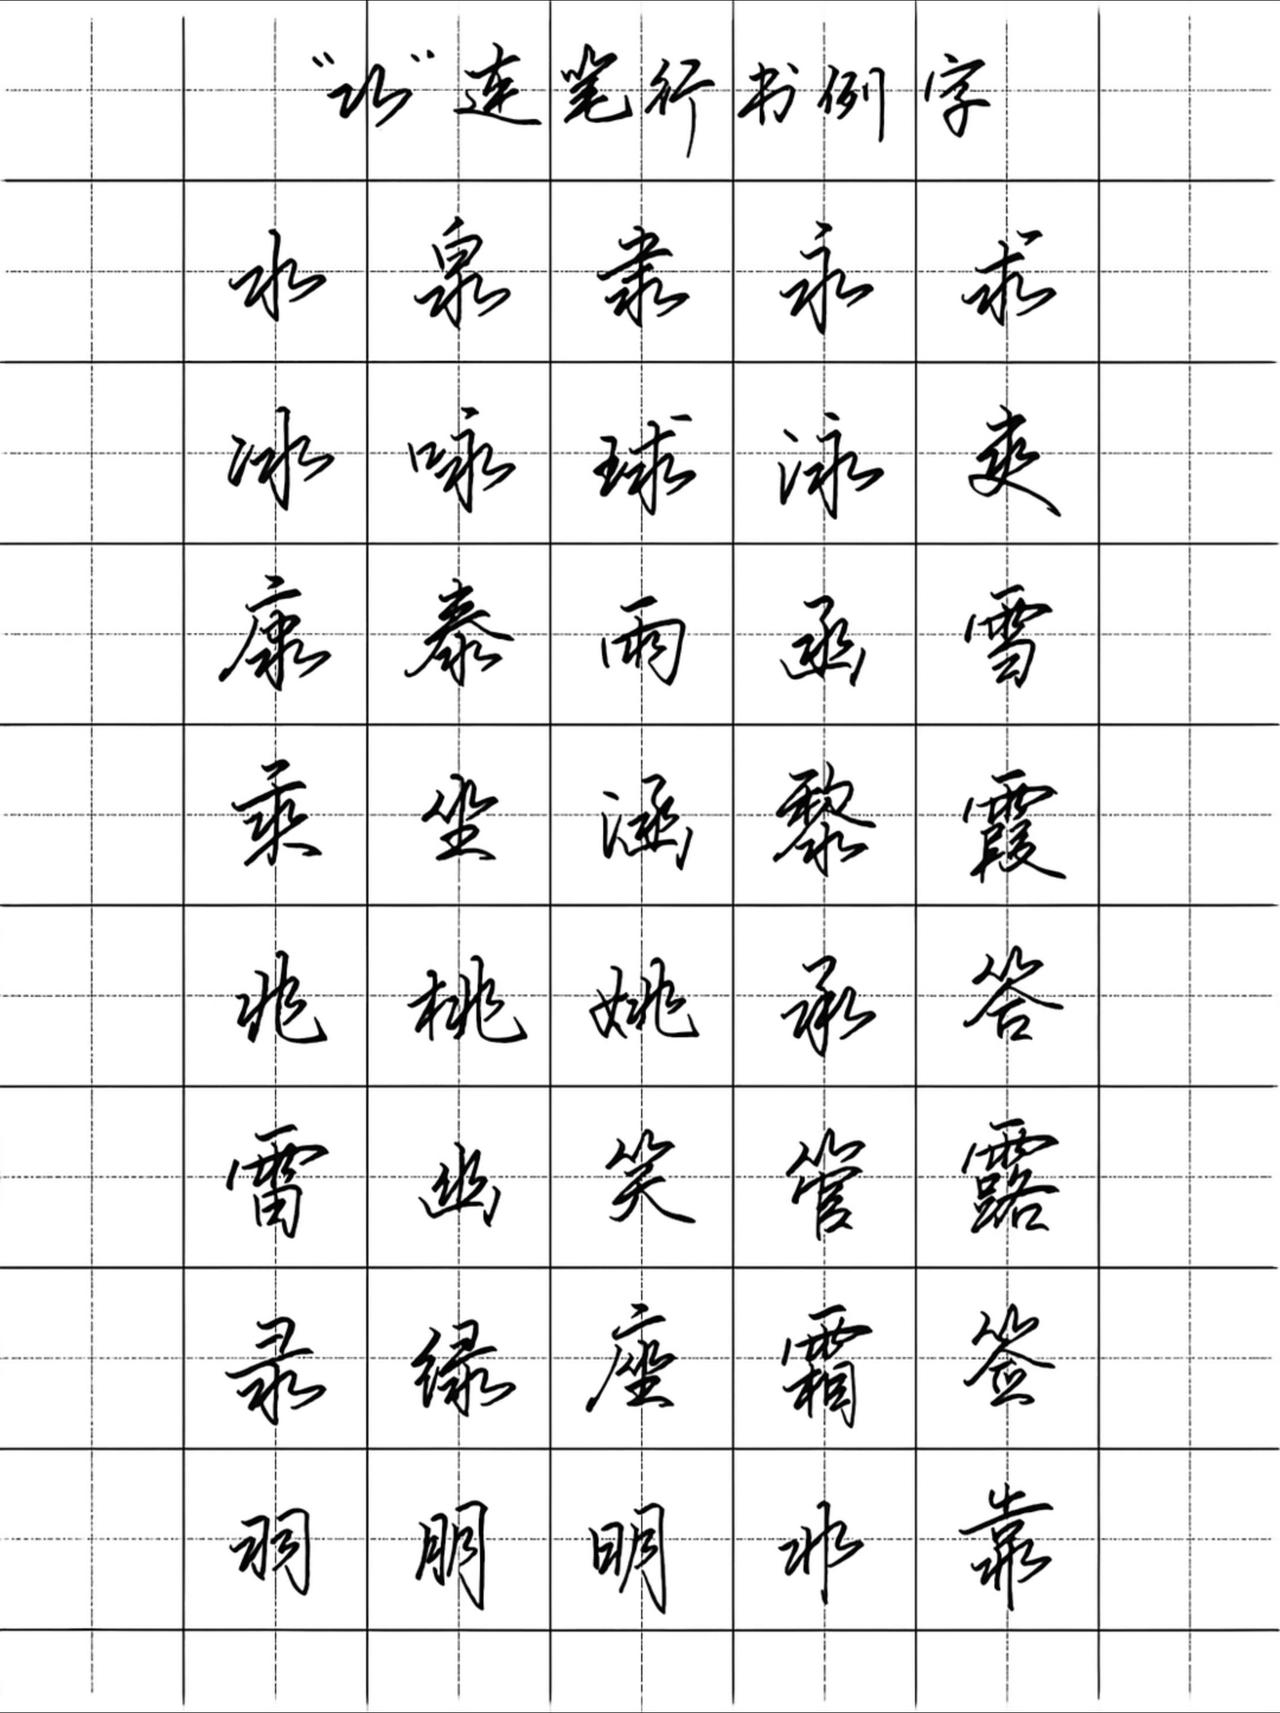 “”连笔行书例字
水 泉 隶 永 求
冰 咏 球 泳 爽
康 泰 雨 函 雪
乘 坐 涵 黎 霞
兆 桃 姚 承 答
雷 幽 笑 管 露
录 绿 座 霜 签
羽 朋 明 非 靠